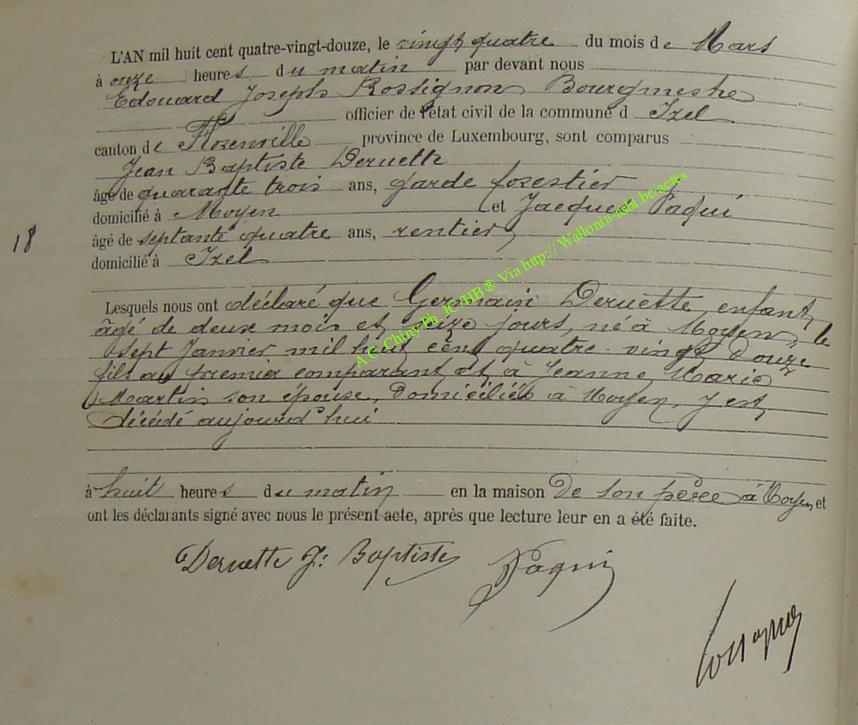 L'AN mil huit cent quatre-vingt-douze, le vingt quatre du mois de Mars
à onze heures du matin par devant nous
Edouard Joseph Rossignon Bourgmestre
officier de l'état civil de la commune d Izel
canton de Florenville province de Luxembourg, sont comparus
Jean Baptiste Deruette
âgé de quarante trois ans, garde forestier
domicilié à Moyen et Jacques Paqui
18
âgé de septante quatre ans, rentier,
domicilié à Izel
Lesquels nous ont déclaré que Germain Deruette, enfant,
âgé de deux mois et jours, né à Moyen, le
sept Janvier mil huit cent quatre-vingt douze
fils au premier comparant et à Jeanne Marie
Martin son épouse, domiciliés à Moyen, y est,
décédé aujourd'hui
à huit heures du matin en la maison de son père à Moyen, et
ont les déclarants signé avec nous le présent acte, après que lecture leur en a été faite.
Deruette J. Baptiste JPaqui
A.C. Chiny Ph. JC/HB ® Via http:// Wallonia-asbl.be/actes